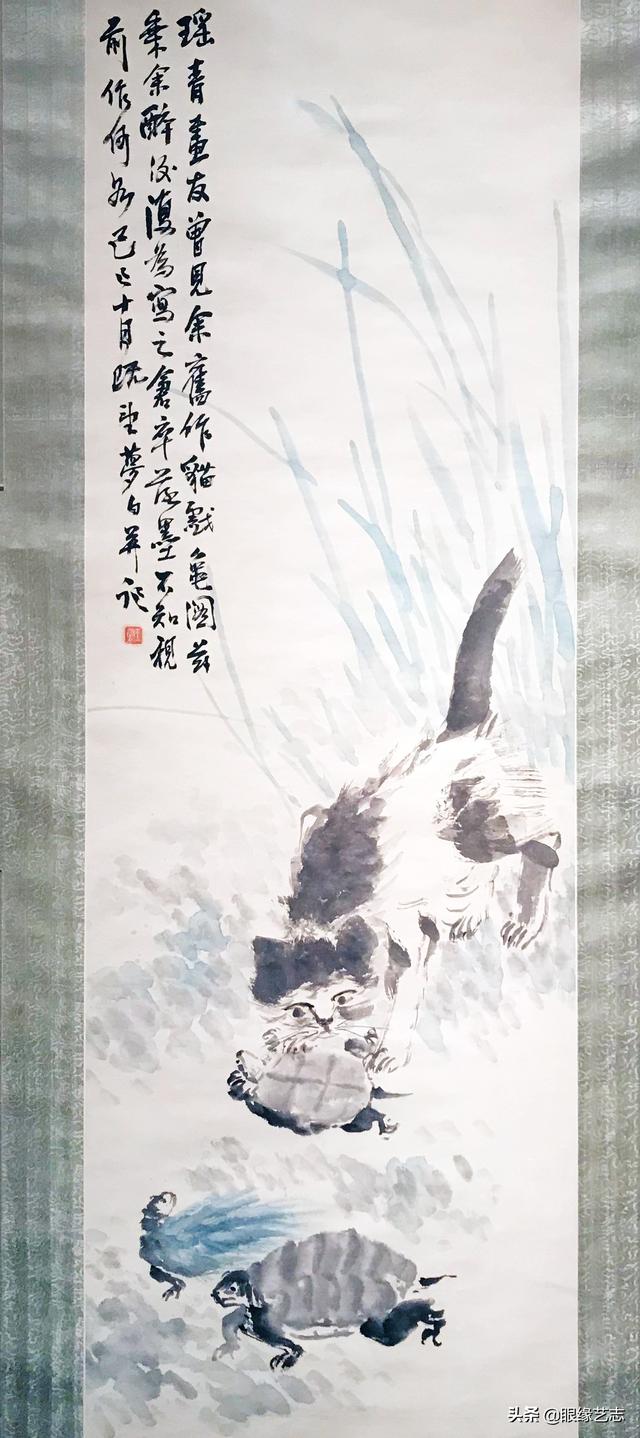 瑶青画友曾見余舊作貓戲龜圖茲
乗余醉後復為寫之倉卒落墨不知視
前作何如己巳十月既望夢白並記
头条 @眼缘艺志